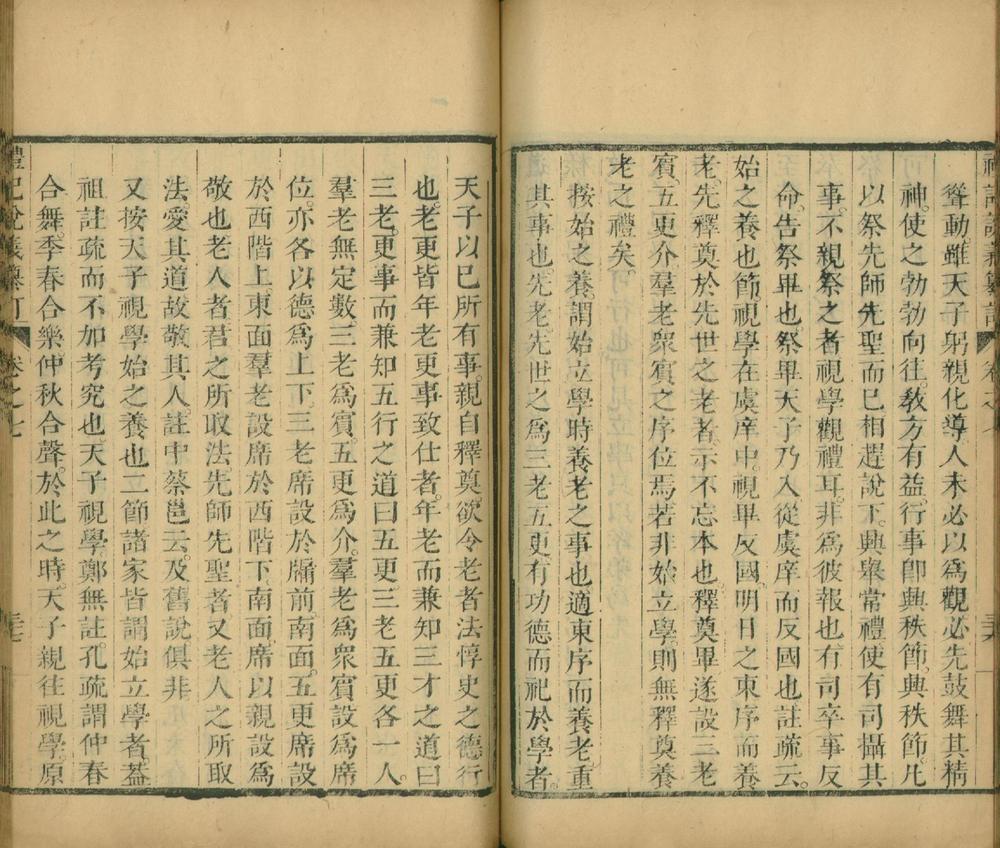 聳動。雖天子躬親化導人未必以爲觀必先鼓舞其精
神。使之勃勃向往。敎方有益。行事卽興秩節。興秩節。凡
以祭先師先聖而巳相趕說下。興舉常禮使有司攝其
事。不親祭之者視學觀禮耳。非爲彼報也。有司卒事反
命。告祭畢也。祭畢天子乃入。從虞庠而反國也註疏云。
始之養也節視學在虞庠中。視畢反國。明日之東序而養
老。先釋奠於先世之老者。示不忘本也。釋奠畢。遂設三老
賓。五更介。羣老衆賓之序位焉。若非始立學則無釋奠養
老之禮矣。
按始之養。謂始立學時養老之事也。適東序而養老。重
其事也。先老先世之爲三老五更。有功德而祀於學者。
天子以巳所有事。親自釋奠。欲令老者法惇史之德行
也。老更皆年老更事致仕者。年老而兼知三才之道曰
三老。更事而兼知五行之道曰五更三老五更各一人。
羣老無定數。三老爲賓。五更爲介。羣老爲衆賓設爲席
位。亦各以德爲上下。三老席設於牖前南面。五更席設
於西階上東面羣老設席於西階下。南面。席以親設爲
敬也老人者君之所取法先師先聖者又老人之所取
法愛其道故敬其人。註中蔡邕云。及舊說俱非
又按天子視學始之養也二節諸家皆謂始立學者。葢
祖註疏而不加考究也天子視學。鄭無註。孔疏謂仲春
合舞。季春合樂仲秋合聲。於此之時。天子親往視學。原
禮記說義纂訂 卷之七 三七